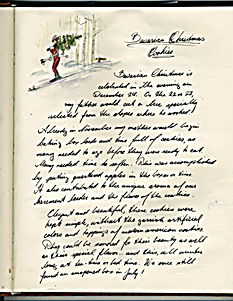 Bavarian Christmas
Cookies
Bavarian Christmas is
celebrated in the evening on
December 24. On the 22 or 23,
my father would cut a tree specially
selected from the slopes where he worked!
Already in November my mother would begin
baking box loads and tins full of cookies, as
many needed to age before they were ready to eat.
Many needed time to soften. This was accomplished
by putting quartered apples in the box or tins.
It also contributed to the unique aroma of our
basement larder and the flavor of the cookies.
Elegant and beautiful, these cookies were
kept simple, without the garish artificial
colors and toppings of modern american cookies.
They could be savored for their beauty as well
as their special flavor. and this, all winter
long, at tea-time or bed time. We once still
found an unopened box in July!